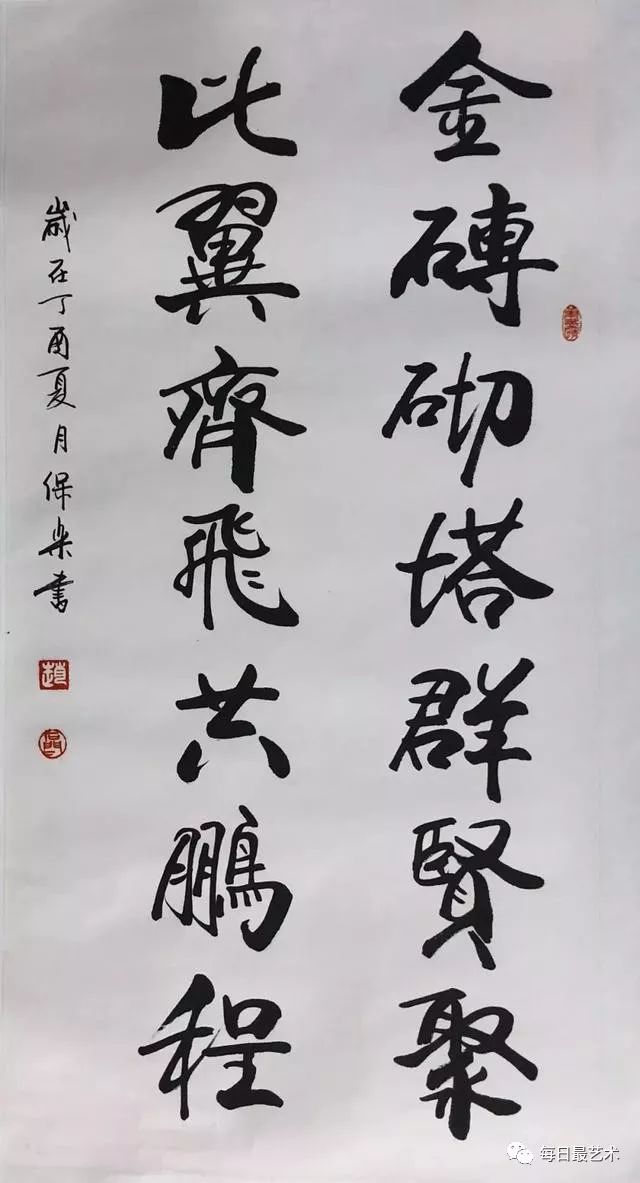 金磚砌塔群賢聚
比翼齊飛共鵬程
歲在丁酉夏月保樂书
趙
每日最艺术